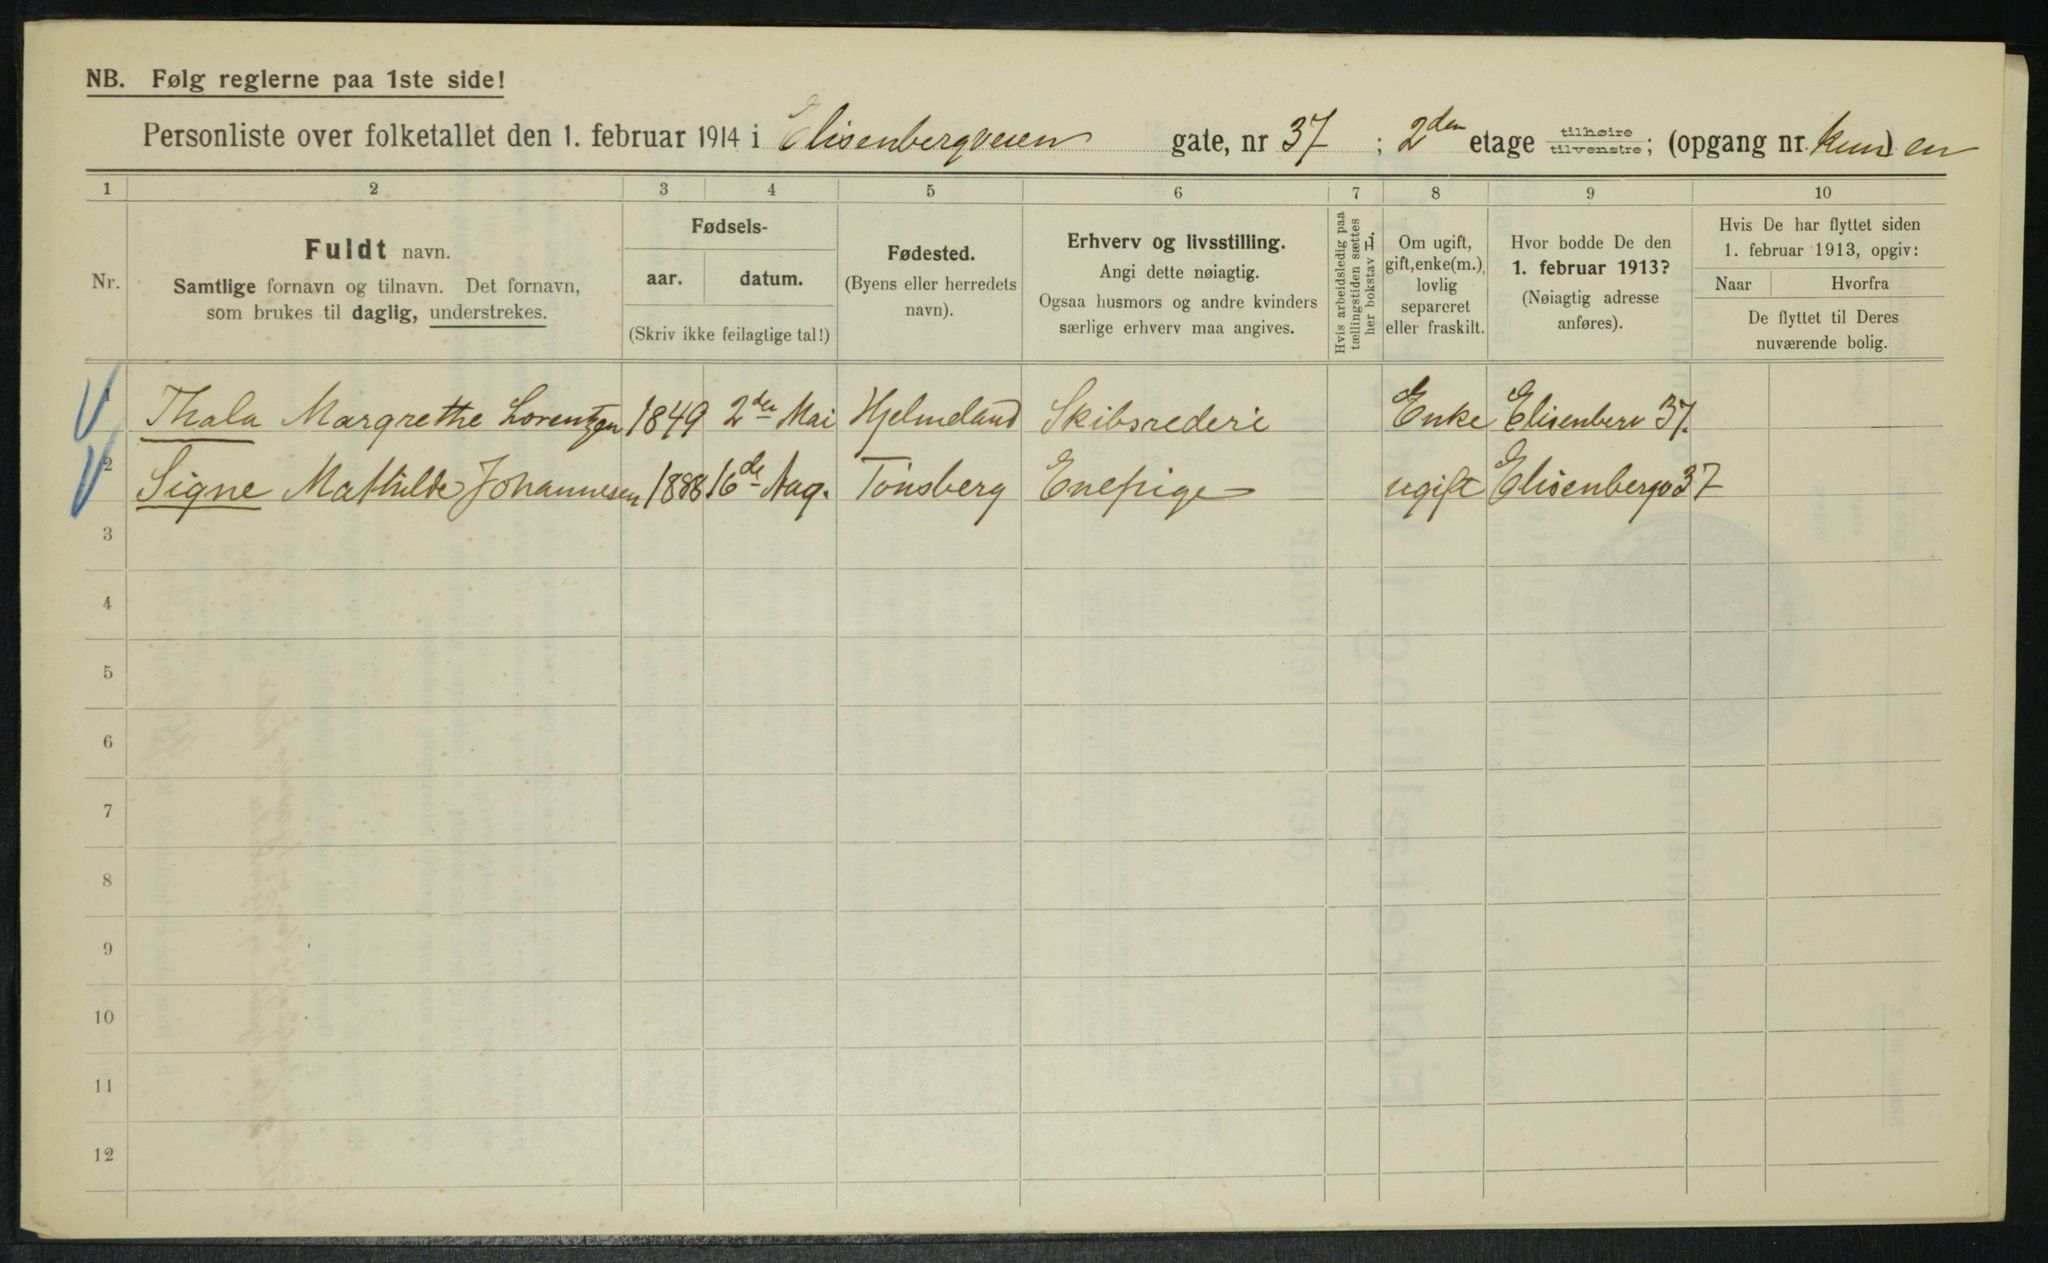 NB. Følg reglerne paa 1ste side!
Personliste over folketallet den 1. februar 1914 i Elisenbergveien gate, nr 37 ; 2den etage tilhøire/tilvenstre; (opgang nr. kun) en
1 2 3 4 5 6 7 8 9 10
Nr.
Fuldt navn.
Samtlige fornavn og tilnavn. Det fornavn,
som brukes til daglig, understrekes.
Fødsels-
aar. datum.
(Skriv ikke feilagtige tal!)
Fødested.
(Byens eller herredets
navn).
Erhverv og livsstilling.
Angi dette nøiagtig.
Ogsaa husmors og andre kvinders
særlige erhverv maa angives.
Hvis arbeidsledig paa
tællingstiden sættes
her bokstav L.
Om ugift,
gift, enke(m.),
lovlig
separeret
eller fraskilt.
Hvor bodde De den
1. februar 1913?
(Nøiagtig adresse
anføres).
Hvis De har flyttet siden
1. februar 1913, opgiv:
Naar Hvorfra
De flyttet til Deres
nuværende bolig.
1 Thala Margrethe Lorentzen 1849 2den Mai Hjelmeland Skibsrederi Enke Elisenberv 37.
2 Signe Mathilde Johannesen 1888 16de Aug. Tønsberg Enepige ugift Elisenbergv 37
3
4
5
6
7
8
9
10
11
12